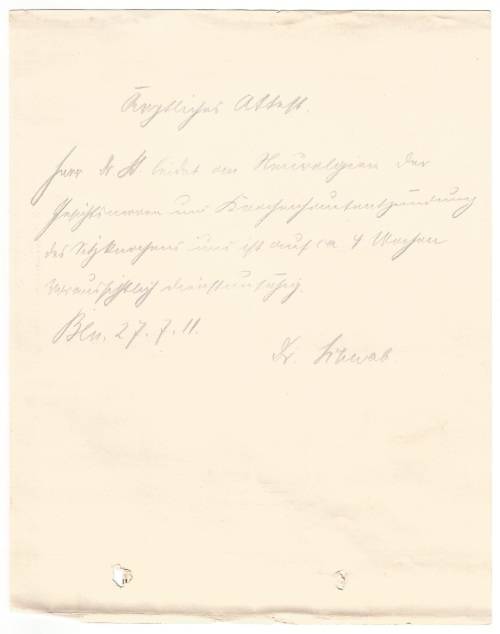 Ärztliches Attest.
Herr Dr. H. leidet an Neuralgien der
Gesichtsnerven und Knochenhautentzündung
des Sitzknochens und ist auf ca 4 Wochen
voraussichtlich dienstunfähig.
Bln. 27.7.11.
Dr. Schwab